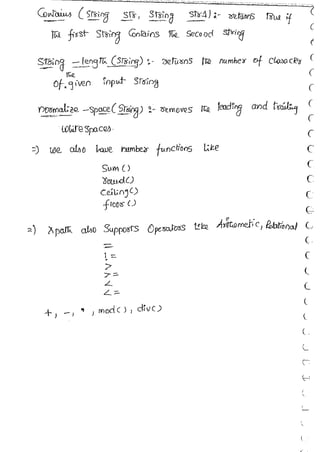 Contains (String str, String str1) :- returns true if
the first string contains the second string
string-length (String) :- returns the number of characters
of the given input string
normalize-space (String) :- removes the leading and trailing
white spaces.
=) we also have number functions like
sum ()
round()
ceiling()
floor ()
2) Xpath also supports operators like Arithmetic, Relational
=
! =
>
> =
<
< =
+, -, *, mod( ), div( )